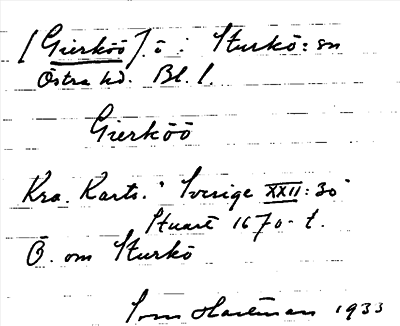 [Gierköö]. ö i Sturkö: sn
Östra hd. Bl. l.
Gierköö
Kra. Karts. Sverige XXII: 30
Stuart 1670-t.
Ö. om Sturkö
Hartman 1933